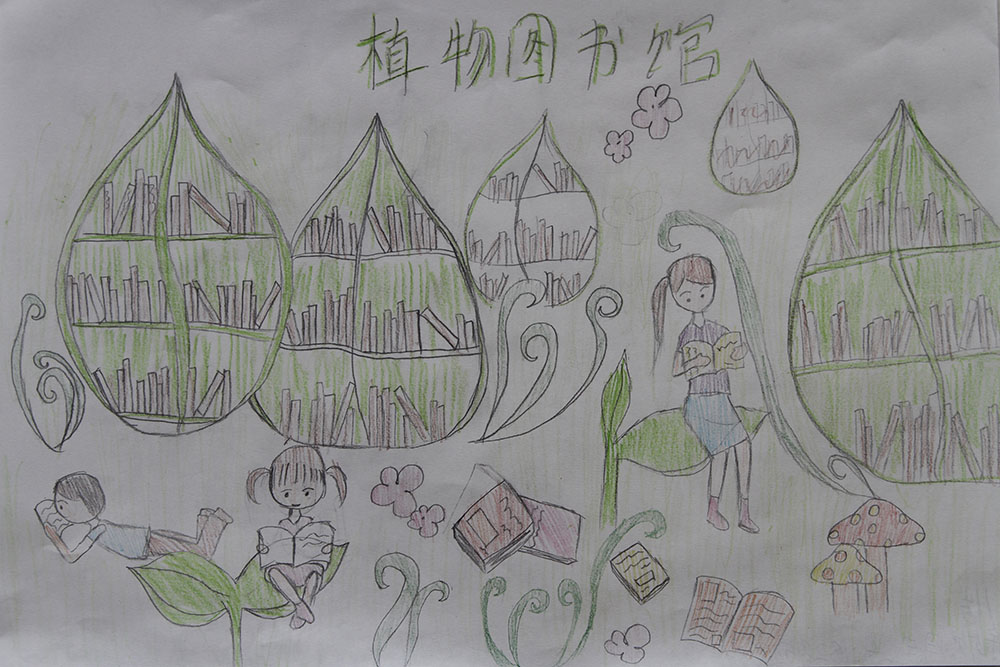 植物图书馆